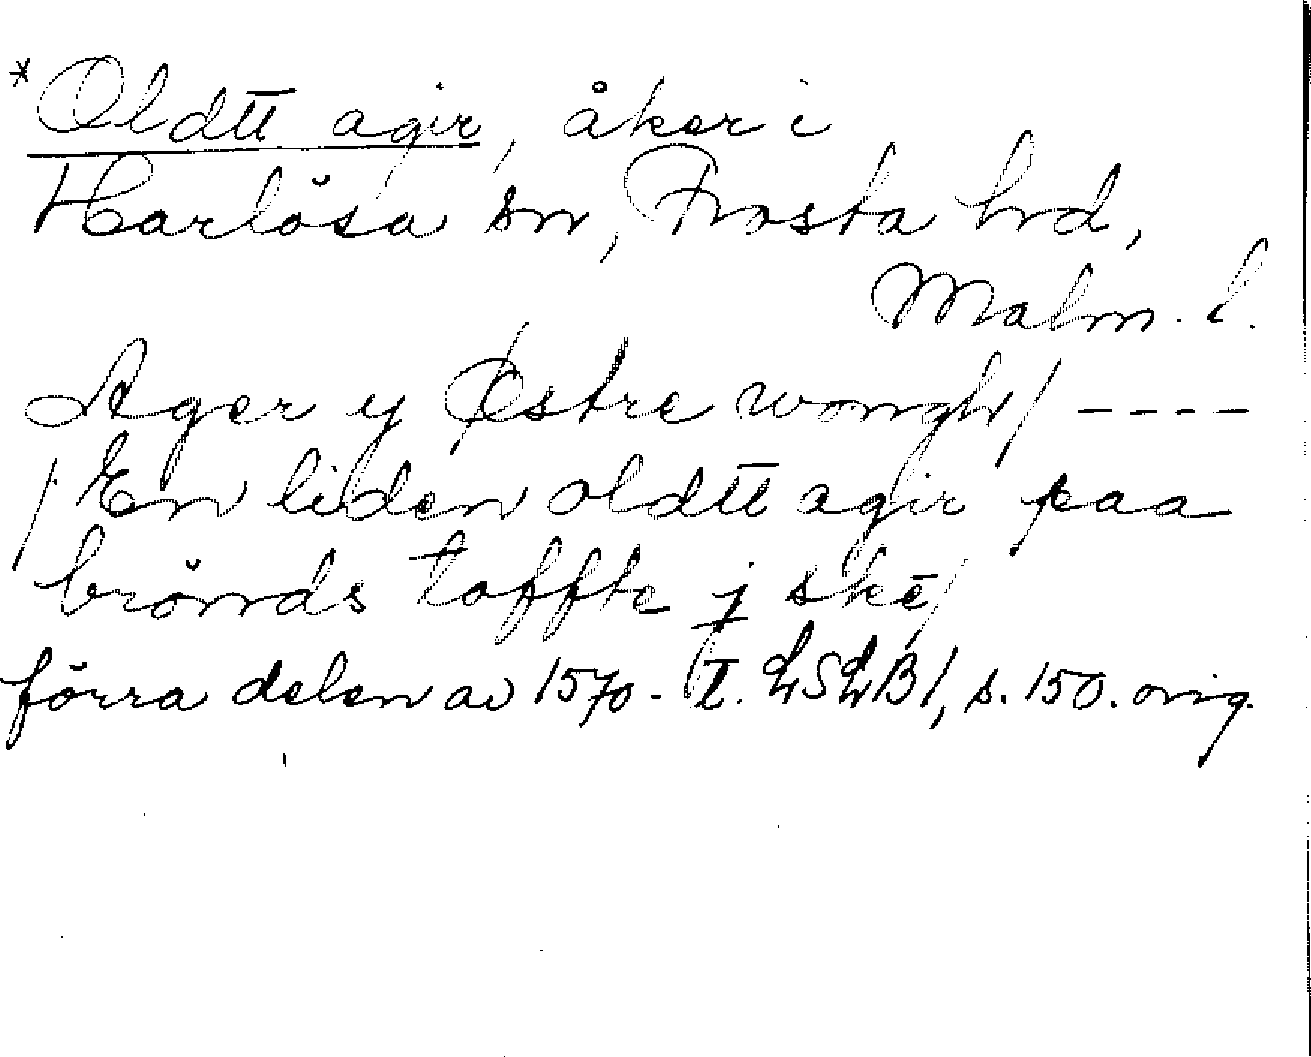 *Oldtt agir, åker i
Harlösa sn, Frosta hd,
Malm. l.
Ager y Østre wongh/ ----
/ En liden oldtt agir paa
brönds toffte j skē/
förra delen av 1570-t. LSLB1, s. 150. orig.